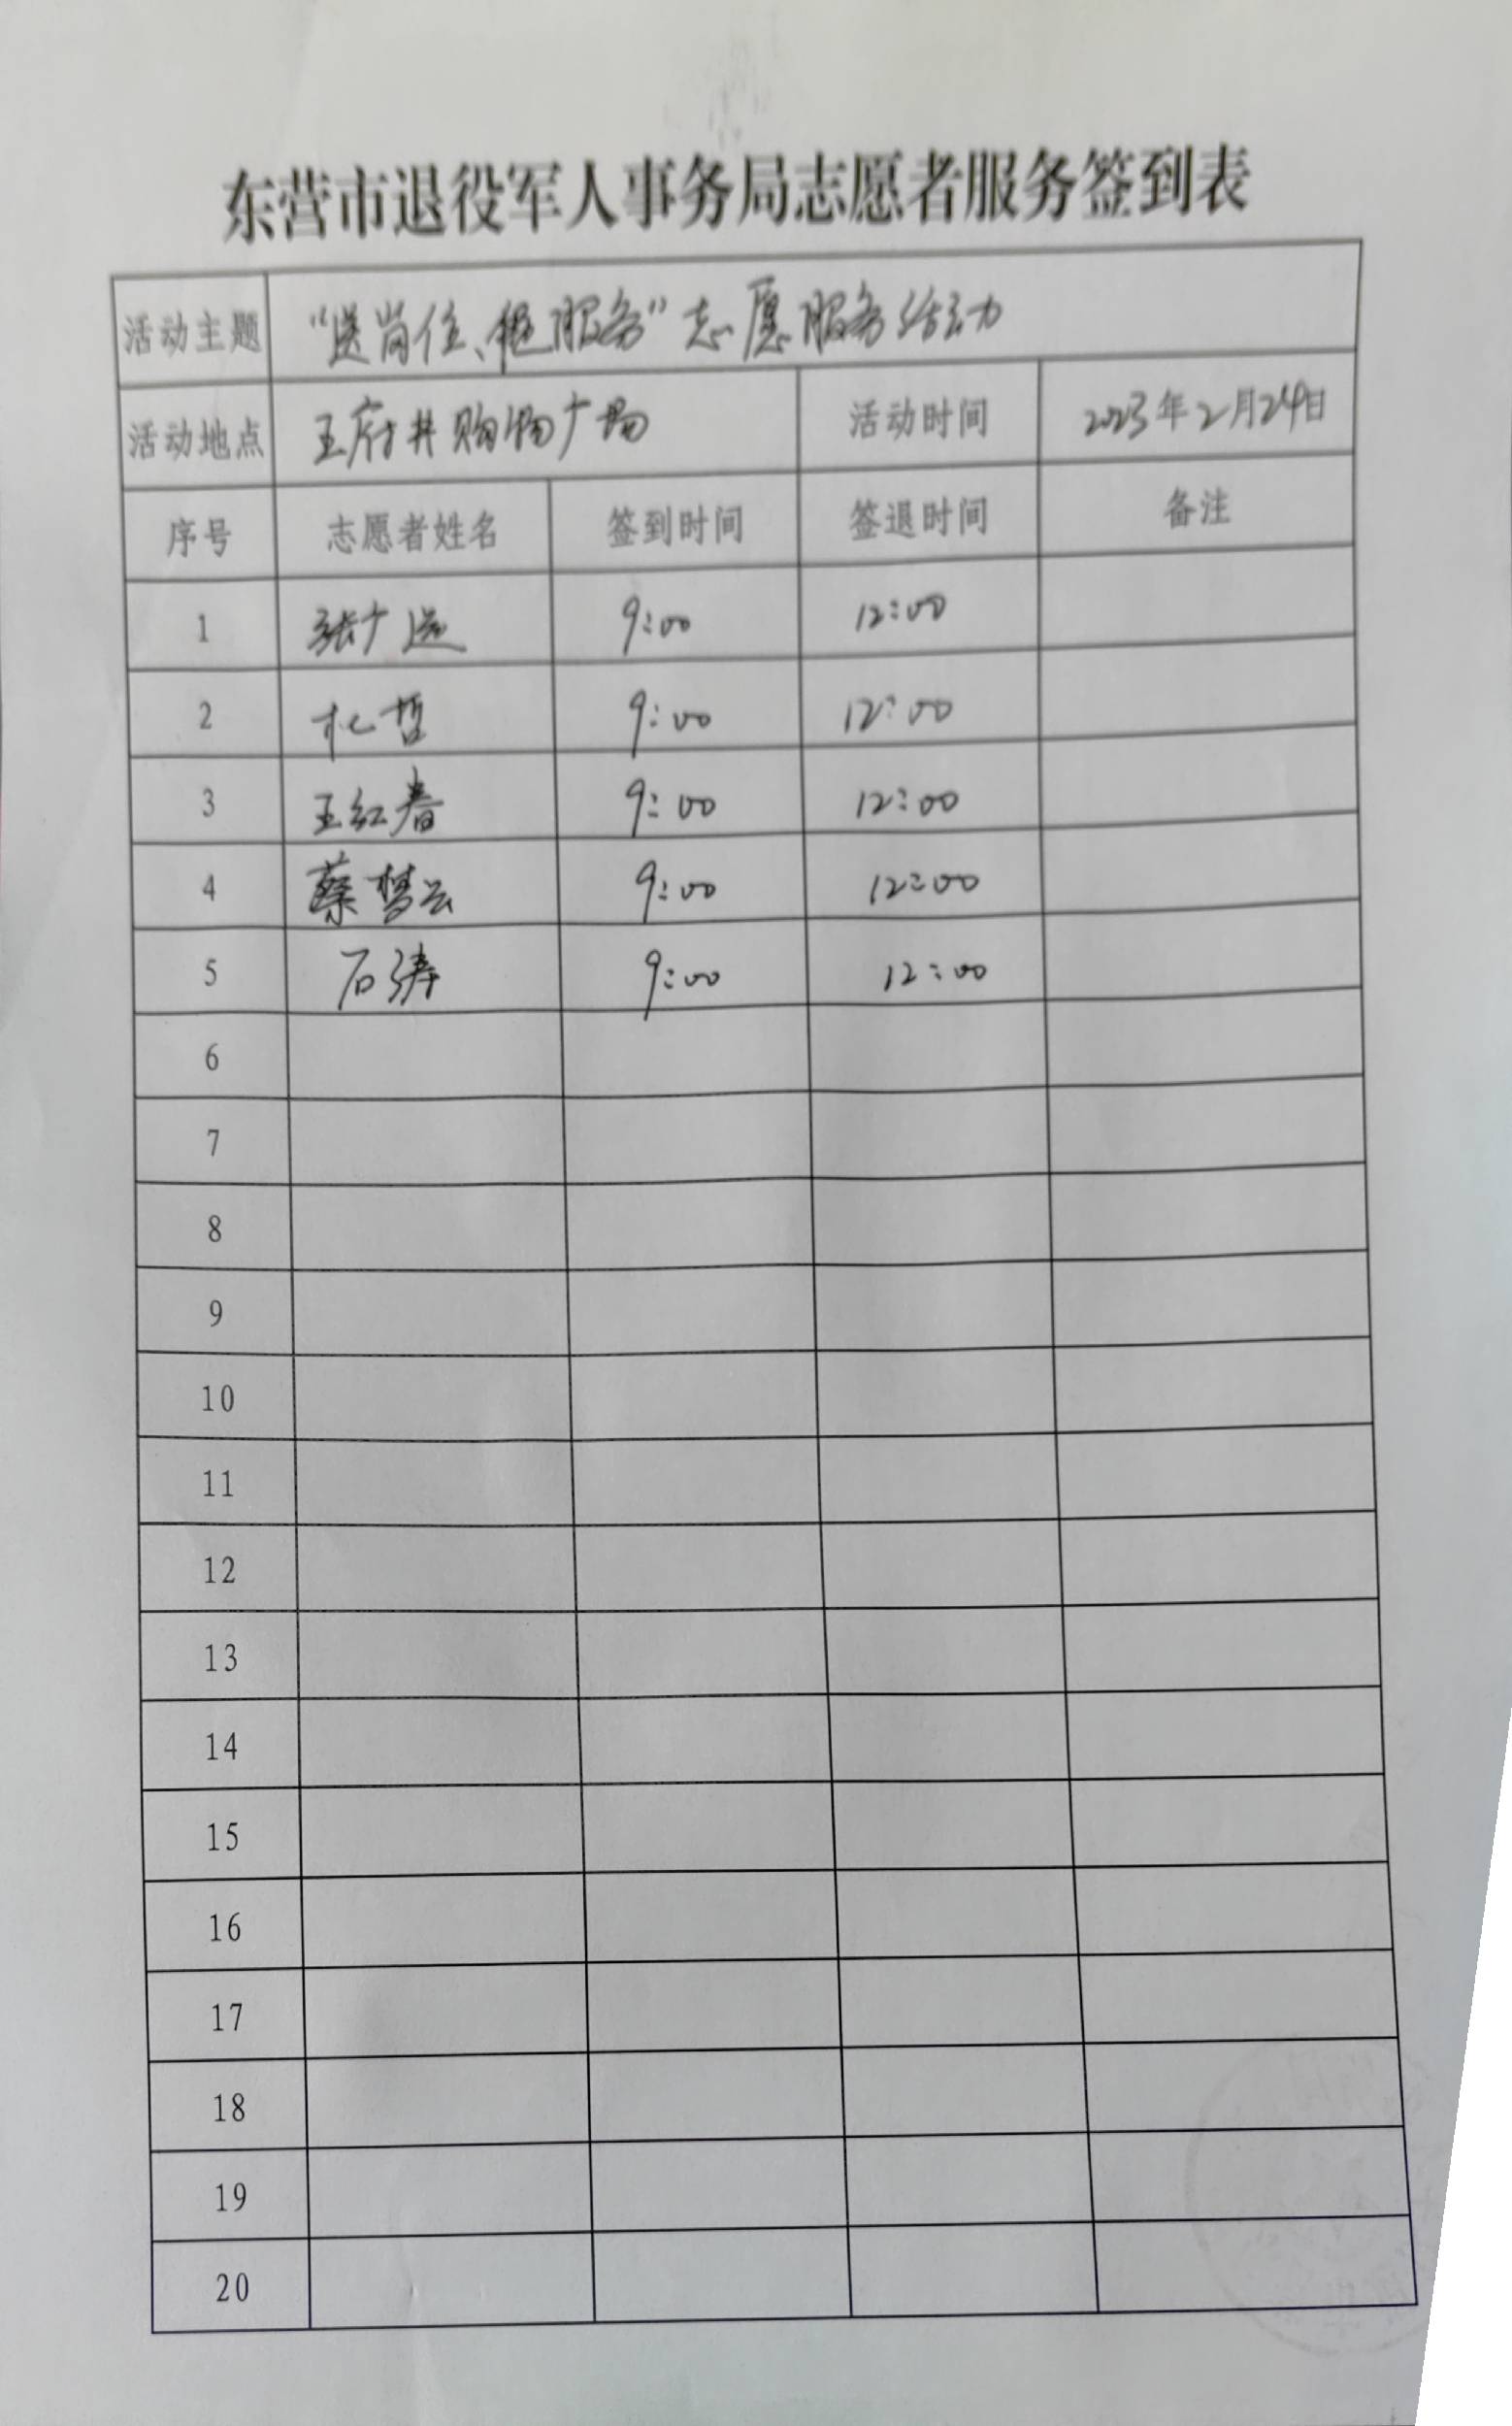 东营市退役军人事务局志愿者服务签到表
活动主题 “送岗位、促服务”志愿服务活动
活动地点 王府井购物广场 活动时间 2023年2月24日
序号 志愿者姓名 签到时间 签退时间 备注
1 张广运 9:00 12:00
2 杜哲 9:00 12:00
3 王红春 9:00 12:00
4 蔡梦云 9:00 12:00
5 石涛 9:00 12:00
6
7
8
9
10
11
12
13
14
15
16
17
18
19
20